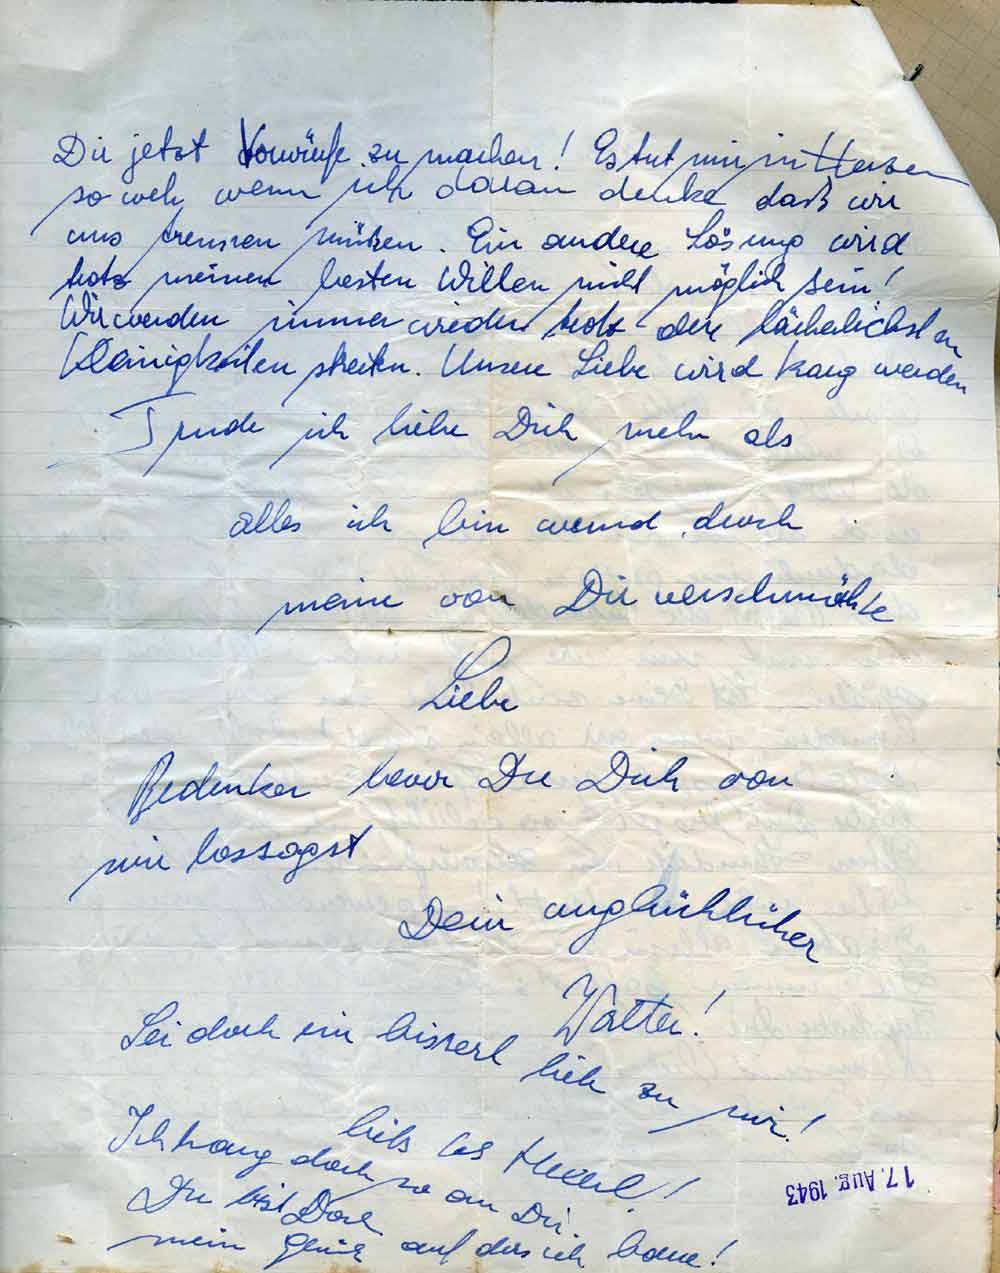 Dir jetzt Vorwürfe zu machen! Es tut mir im Herzen
so weh wenn ich daran denke daß wir
uns trennen müßen. Ein andere Lösung wird
trotz meinen besten Willen nicht möglich sein!
Wir werden immer wieder trotz der lächerlichsten
Kleinigkeiten streiten. Unsere Liebe wird karg werden
Trude ich liebe Dich mehr als
alles ich bin wund durch
meine von Dir verschmähte
Liebe
Bedenke bevor Du Dich von
mir lossagst
Dein unglücklicher
Walter!
Sei doch ein bisserl lieb zu mir!
bitt
Ich hang doch so an Dir
Du bist Doch
mein Glück auf das ich baue!
17. Aug. 1943